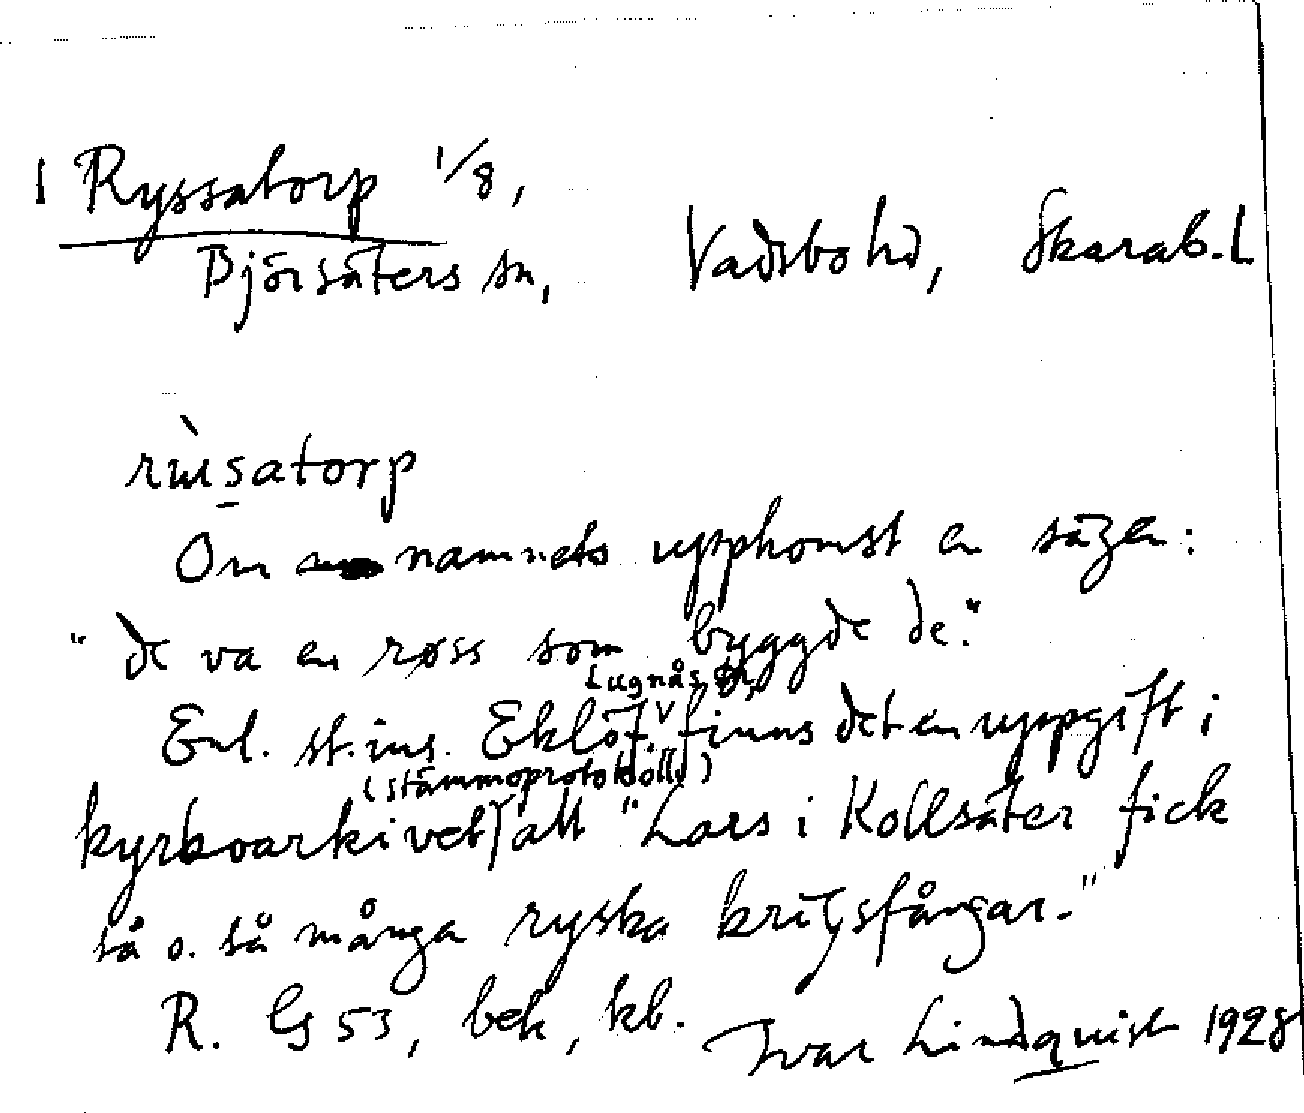 1 Ryssatorp 1/8,
Björsäters sn, Vadsbo hd, Skarab. L
Om namnets uppkomst en sägen:
"de va en røss som byggde de."
Lugnås sn,
Enl. st.ins. Eklöf, finns det en uppgift i
(stämmoprotokoll)
kyrkoarkivet att "Lars i Kollsäter fick
så o. så många ryska krigsfångar."
R. Gs 53, bek, kb. Ivar Lindquist 1928